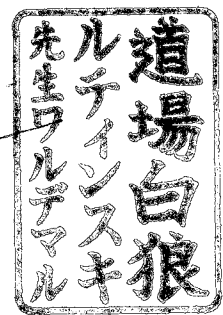 道場白狼
ルティンスキ
先生ワルデマル